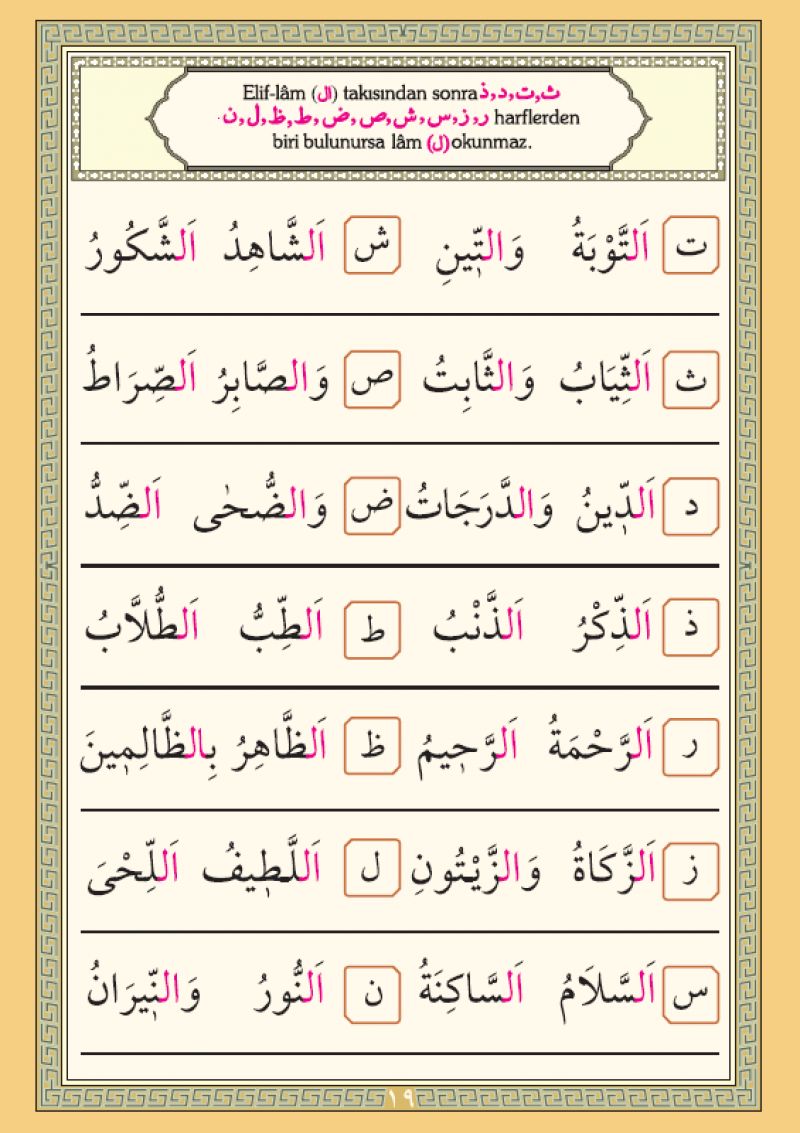 Elif-lâm (ال) takısından sonra ث,ت,د,ذ
ر,ز,س,ش,ص,ض,ط,ظ,ل,ن harflerden
biri bulunursa lâm (ل) okunmaz.
ت اَلتَّوْبَةُ وَالتّ۪ينِ ش اَلشَّاهِدُ اَلشَّكُورُ
ث اَلثِّيَابُ وَالثَّابِتُ ص وَالصَّابِرُ اَلصِّرَاطُ
د اَلدّ۪ينُ وَالدَّرَجَاتُ ض وَالضُّحٰى اَلضِّدُّ
ذ اَلذِّكْرُ اَلذَّنْبُ ط اَلطِّبُّ اَلطُّلَّابُ
ر اَلرَّحْمَةُ اَلرَّح۪يمُ ظ اَلظَّاهِرُ بِالظَّالِم۪ينَ
ز اَلزَّكَاةُ وَالزَّيْتُونِ ل اَللَّط۪يفُ اَللِّحْىَ
س اَلسَّلَامُ اَلسَّاكِنَةُ ن اَلنُّورُ وَالنّ۪يرَانُ
١٩